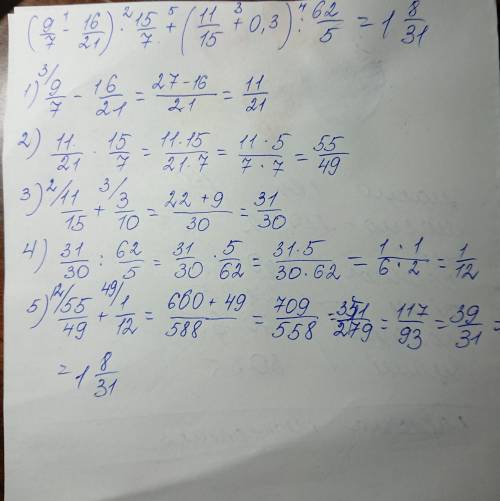 (9/7 - 16/21) · 15/7 + (11/15 + 0,3) : 62/5 = 1 8/31
1) 9/7 - 16/21 = 27-16/21 = 11/21
2) 11/21 · 15/7 = 11·15/21·7 = 11·5/7·7 = 55/49
3) 11/15 + 3/10 = 22+9/30 = 31/30
4) 31/30 : 62/5 = 31/30 · 5/62 = 31·5/30·62 = 1·1/6·2 = 1/12
5) 55/49 + 1/12 = 660+49/588 = 709/558 = 351/279 = 117/93 = 39/31 =
= 1 8/31